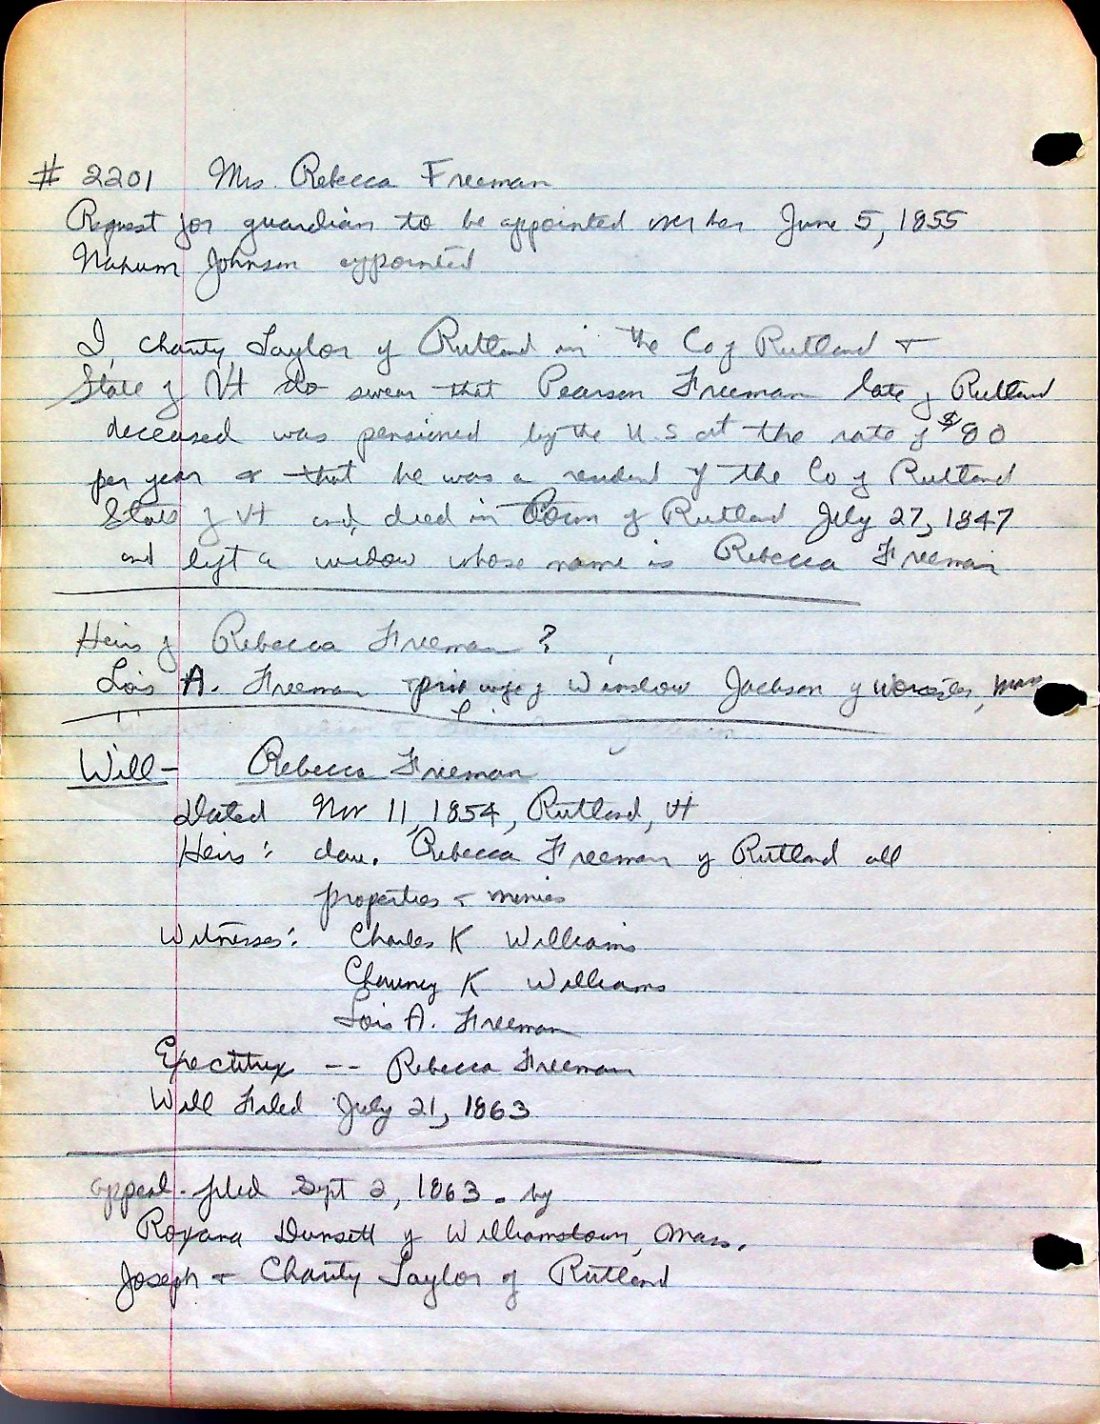 # 2201 Mrs. Rebecca Freeman
Request for guardian to be appointed over her June 5, 1855
Nahum Johnson appointed
I, Charity Taylor of Rutland in the Co of Rutland +
State of Vt do swear that Pearson Freeman late of Rutland
deceased was pensioned by the U.S at the rate of $80
per year & that he was a resident of the Co of Rutland
State of Vt and died in Town of Rutland July 27, 1847
and left a widow whose name is Rebecca Freeman
Heirs of Rebecca Freeman ?
Lois A. Freeman wife of Winslow Jackson of Worcester, Mass
Will - Rebecca Freeman
Dated Nov 11, 1854, Rutland, Vt
Heirs: dau. Rebecca Freeman of Rutland all
properties + monies
Witnesses: Charles K Williams
Chauncy K Williams
Lois A. Freeman
Exectitrix -- Rebecca Freeman
Will Filed July 21, 1863
appeal. filed Sept 2, 1863. by
Roxana Dunsett of Williamstown, Mass.
Joseph + Charity Taylor of Rutland